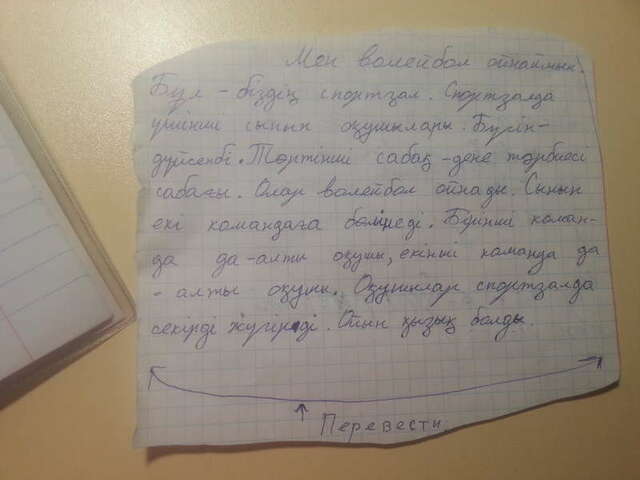 Мен волейбол ойнаймын
Бұл - біздің спортзал. Спортзалда
үшінші сынып оқушылары. Бүгін-
дүйсенбі. Төртінші сабақ - дене тәрбиесі
сабағы. Олар волейбол ойнады. Сынып
екі командаға бөлінеді. Бірінші коман-
да да - алты оқушы, екінші команда да
- алты оқушы. Оқушылар спортзалда
секіріді жүгіреді. Ойын қызық болды.
↑ Перевести.